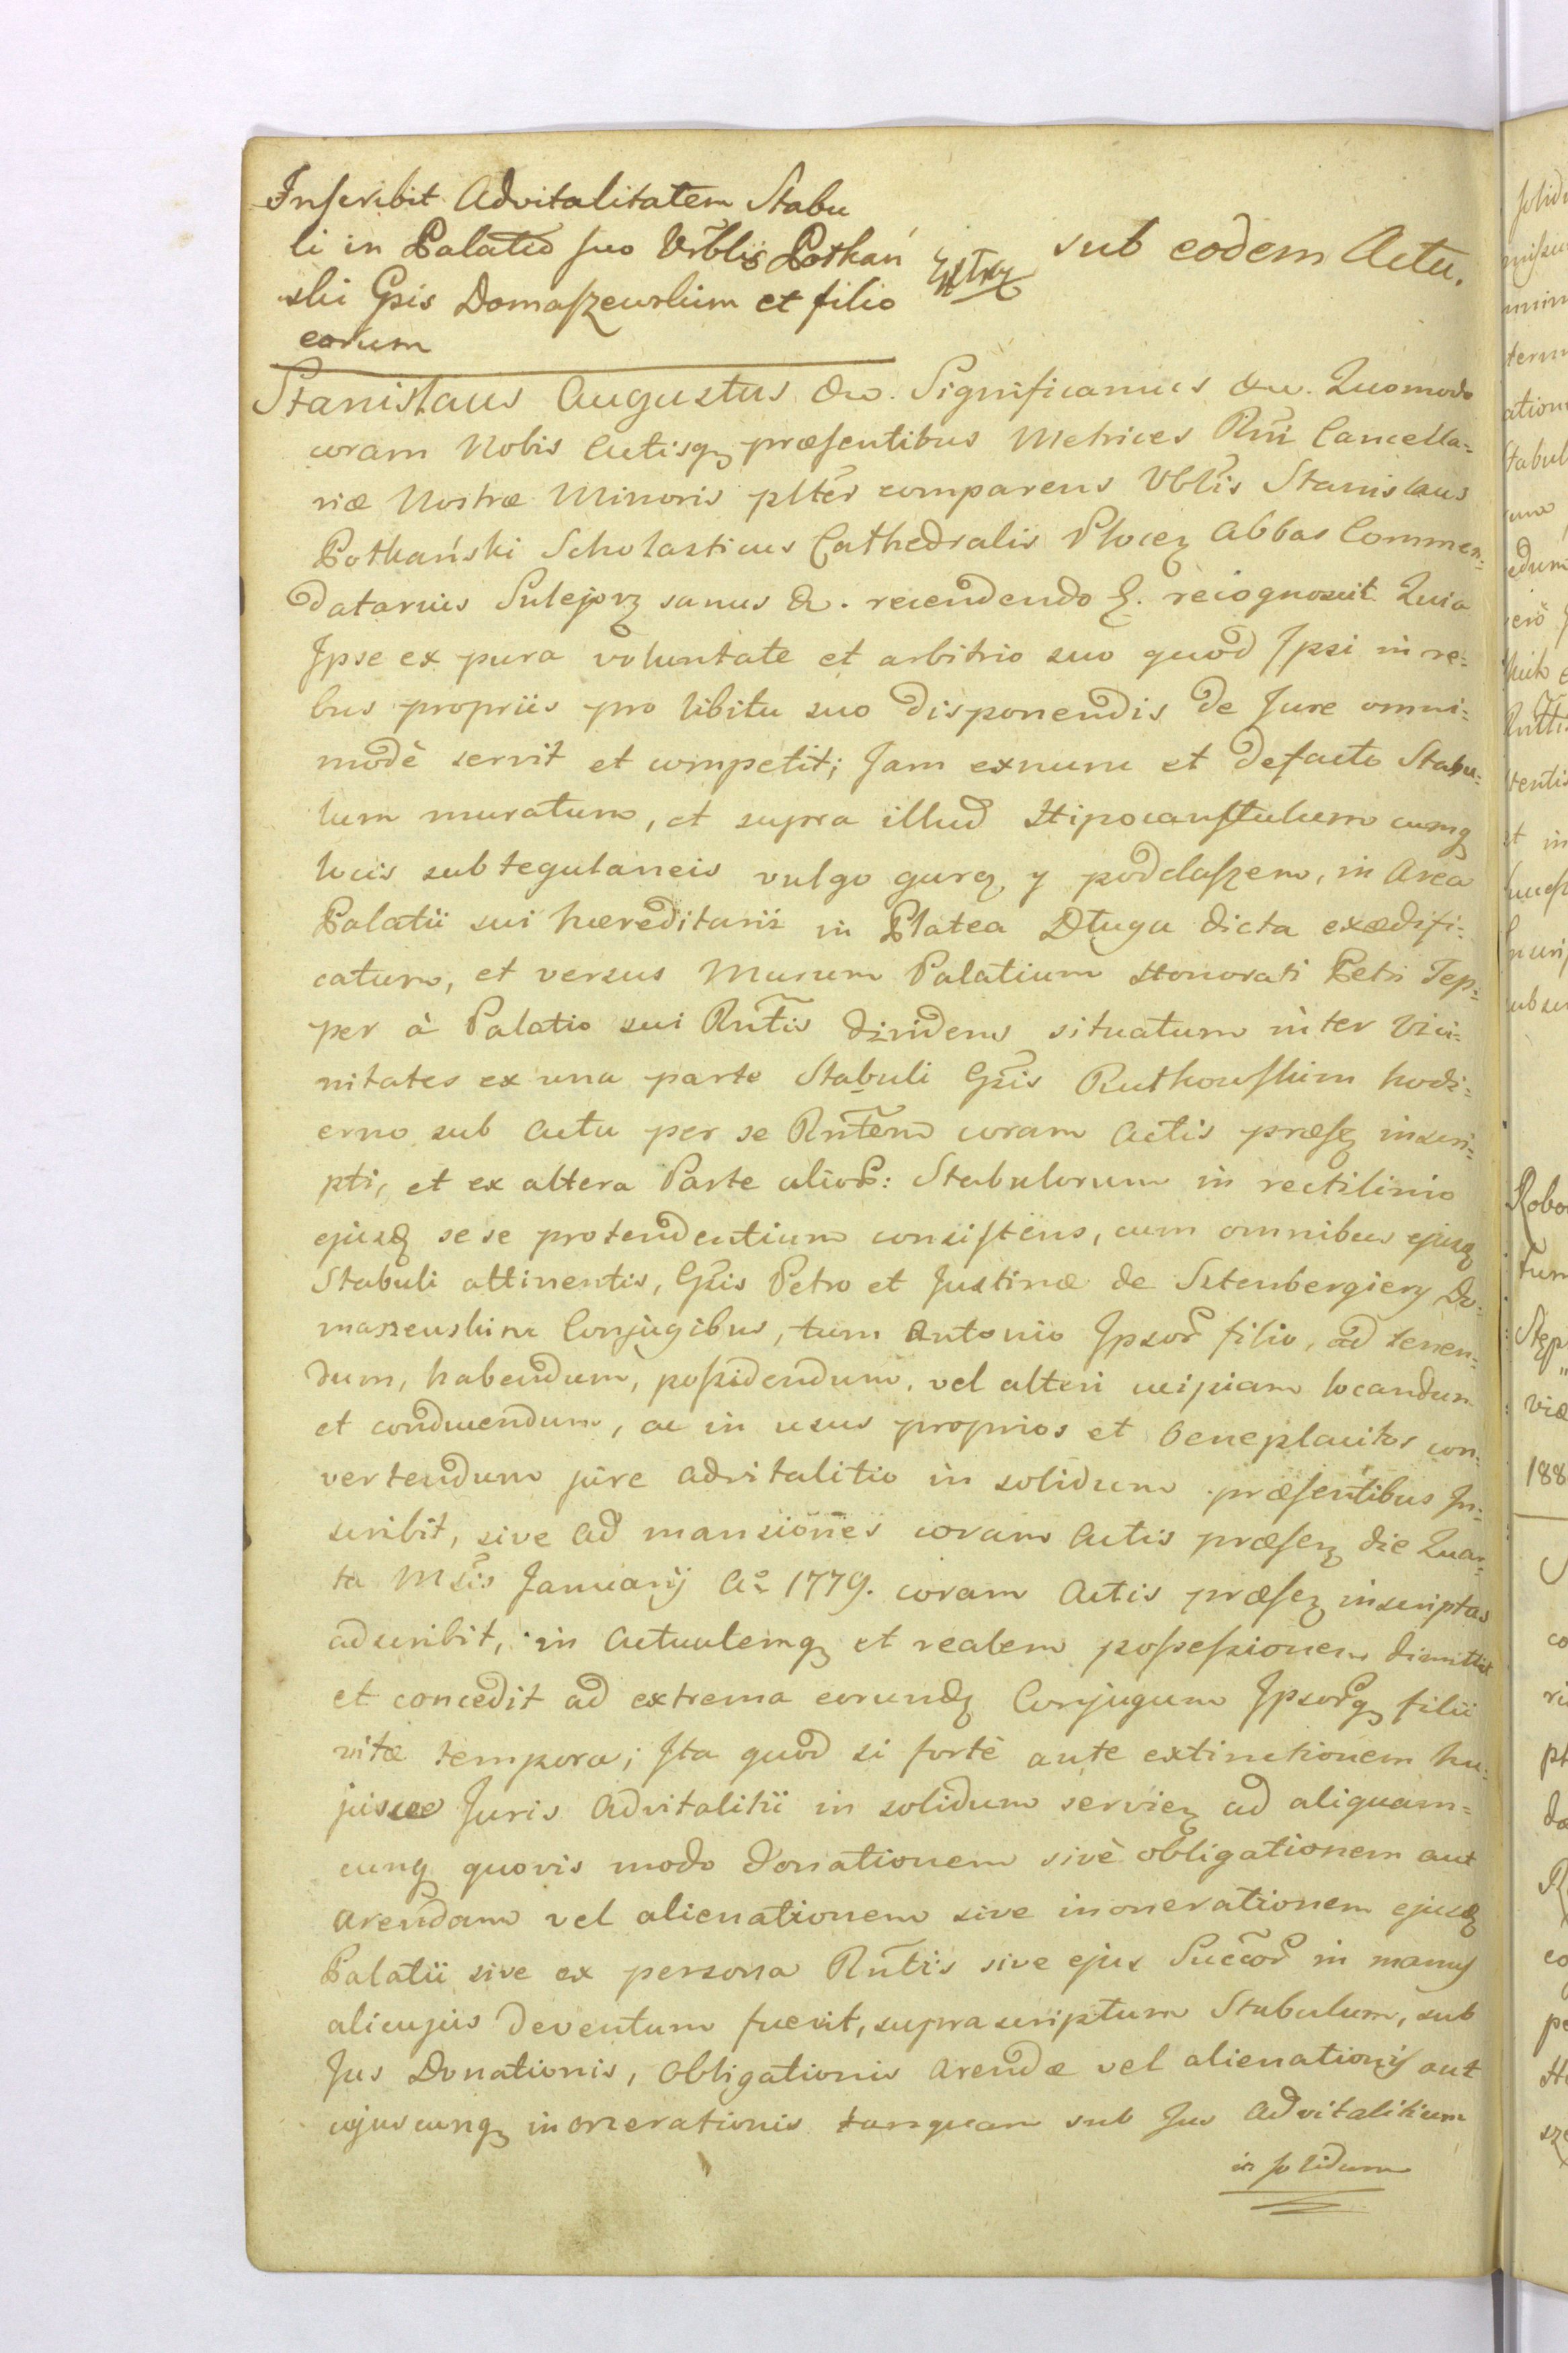 Inscribit Advitalitatem Stabu
li in Palatio suo Urblis Potkań
ski Gsis Domaszewskim et filio
eorum
Extr
sub eodem Actu.
Stanislaus Augustus &c. Significamus &c. Quomodo
coram Nobis Actisq præsentibus Metrices Rni Cancella=
riæ Nostræ Minoris plter comparens Urblis Stanislaus
Potkański Scholasticus Cathedralis Plocen Abbas Commen=
datarius Sulejov sanus &. recendendo &. recognovit Quia
Ipse ex pura voluntate et arbitrio suo quod Ipsi in re=
bus propriis pro libitu suo disponendis de Jure omni=
modè servit et competit; Jam exnunc et defacto Stabu=
lum muratum, et supra illud Hipocaustulum cumq
locis subtegulaneis vulgo gurą y poddaszem, in Area
Palatii sui hæreditarii in Platea Długa dicta exædifi=
catum, et versus Murum Palatium Honorati Petri Tep=
per à Palatio sui Rntis dividens situatum inter Vici=
nitates ex una parte Stabuli Gsis Rutkowskim hodi=
erno sub Actu per se Rntem coram Actis præsen inscri=
pti, et ex altera Parte alior: Stabulorum in rectilinio
ejusd sese protendentium consistens, cum omnibus ejusq
Stabuli attinentis, Gsis Petro et Justinæ de Sztenbergierz Do=
maszewskim Conjugibus, tum Antonio Ipsor filio, ad tenen=
dum, habendum, possidendum, vel alteri cuipiam locandum
et conducendum, ac in usus proprios et beneplacitos con=
vertendum jure advitalitio in solidum præsentibus In=
scribit, sive ad mansiones coram Actis præsen die Quar=
ta Msis Januarij Ao 1779. coram Actis præsen inscriptas
adscribit, in Actualemq et realem possessionem dimittit
et concedit ad extrema eorund Conjugum Ipsorq filii
vitæ tempora; Ita quod si fortè ante extinctionem hu=
jusce Juris Advitalitii in solidum servien ad aliquam=
cunq quovis modo donationem sivè obligationem aut
arendam vel alienationem sive inonerationem ejusd
Palatii sive ex persona Rntis sive ejus Succor in manus
alicujus deventum fuerit, suprascriptum Stabulum, sub
Jus Donationis, obligationis Arendæ vel alienationis aut
cujuscunq inonerationis tanquam sub Jus Advitalitium
in solidum